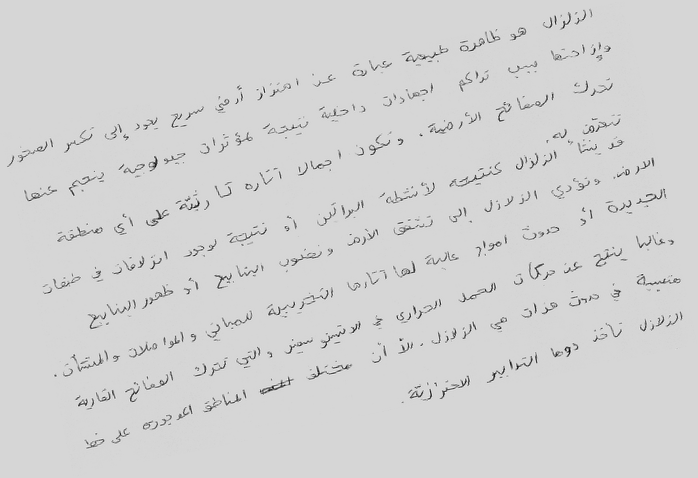 الزلزال هو ظاهرة طبيعية عبارة عن اهتزاز أرضي سريع يعود إلى تكسر الصخور
وإزاحتها بسبب تراكم اجهادات داخلية نتيجة لمؤثرات جيولوجية ينجم عنها
تحرك الصفائح الأرضية. وتكون اجمالا آثاره كارثية على أي منطقة
تتعرض له.
قد ينشأ الزلزال كنتيجة لأنشطة البراكين أو نتيجة لوجود انزلاقات في طبقات
الارض. وتؤدي الزلازل إلى تشقق الأرض ونضوب الينابيع أو ظهور الينابيع
الجديدة أو حدوث امواج عالية لها آثارها التخريبية للمباني والمواصلات والمنشآت.
وغالبا ينتج عن حركات الحمل الحراري في الاثينوسفير والتي تحرك الصفائح القارية
متسببة في حدوث هزات هي الزلازل. الا أن مختلف المناطق الموجودة على خط
الزلازل تأخذ دوما التدابير الاحترازية.